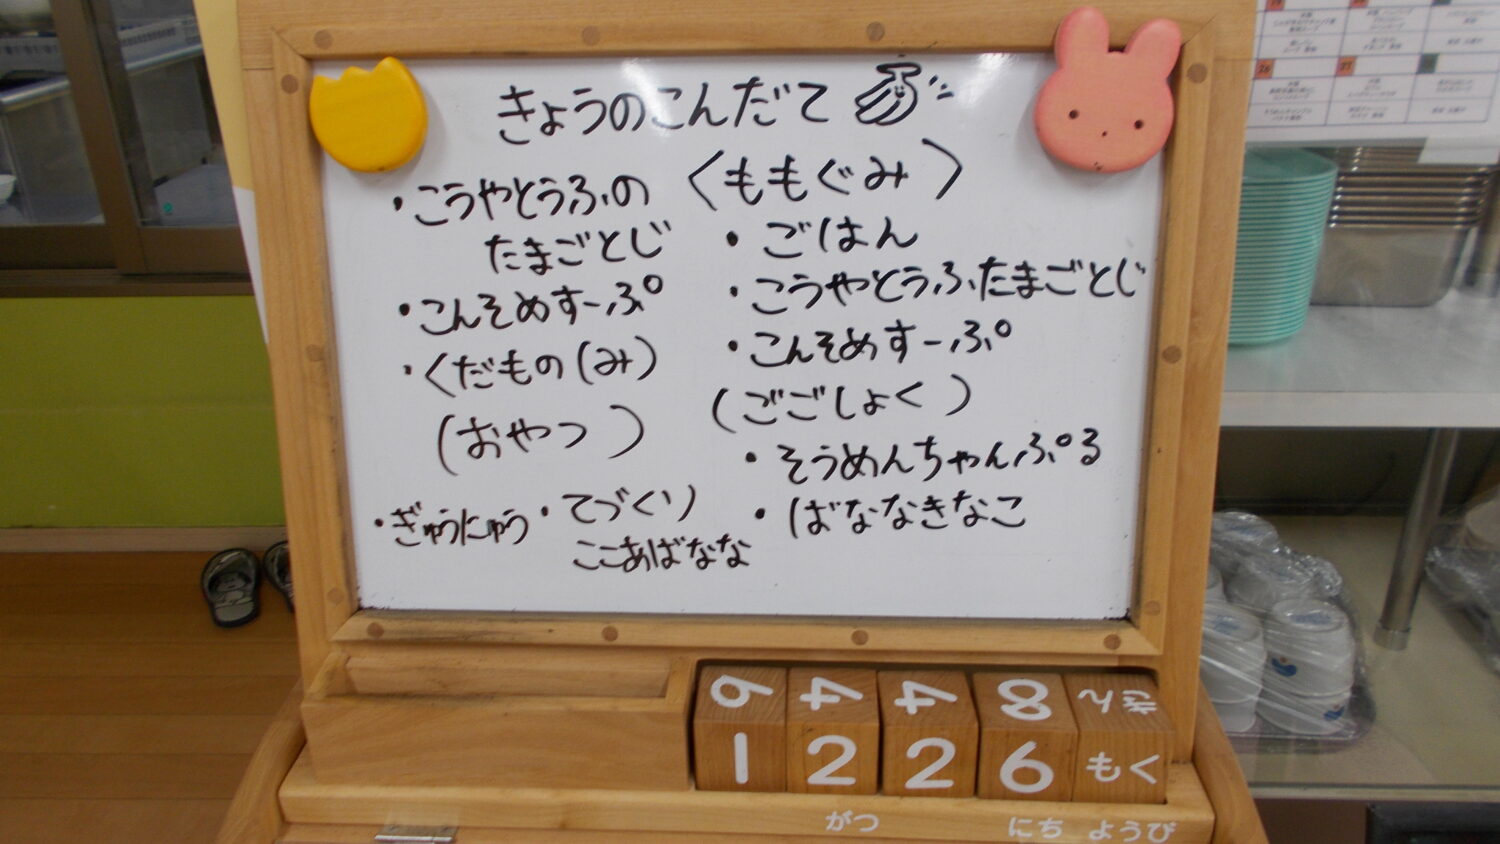 きょうのこんだて
・こうやとうふの
たまごとじ
・こんそめすーぷ
・くだもの(み)
(おやつ)
・ぎゅうにゅう ・てづくり
ここあばなな
〈ももぐみ〉
・ごはん
・こうやとうふたまごとじ
・こんそめすーぷ
(ごごしょく)
・そうめんちゃんぷる
・ばななきなこ
9 4 4 8
1 2 2 6 もく
がつ にち ようび
26 27